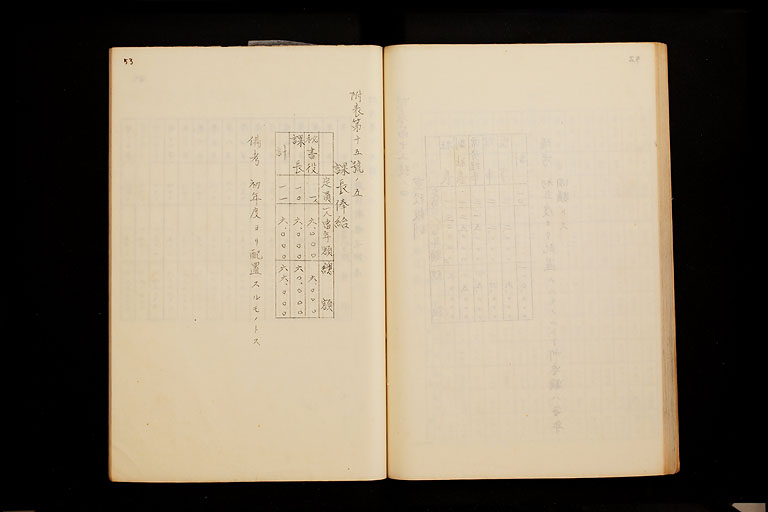 53
附表第十五號ノ五
課長俸給
定員 一人當年額 總額
秘書役 一 六、〇〇〇 六、〇〇〇
課長 一〇 六、〇〇〇 六〇、〇〇〇
計 一一 六、〇〇〇 六六、〇〇〇
備考 初年度ヨリ配置スルモノトス